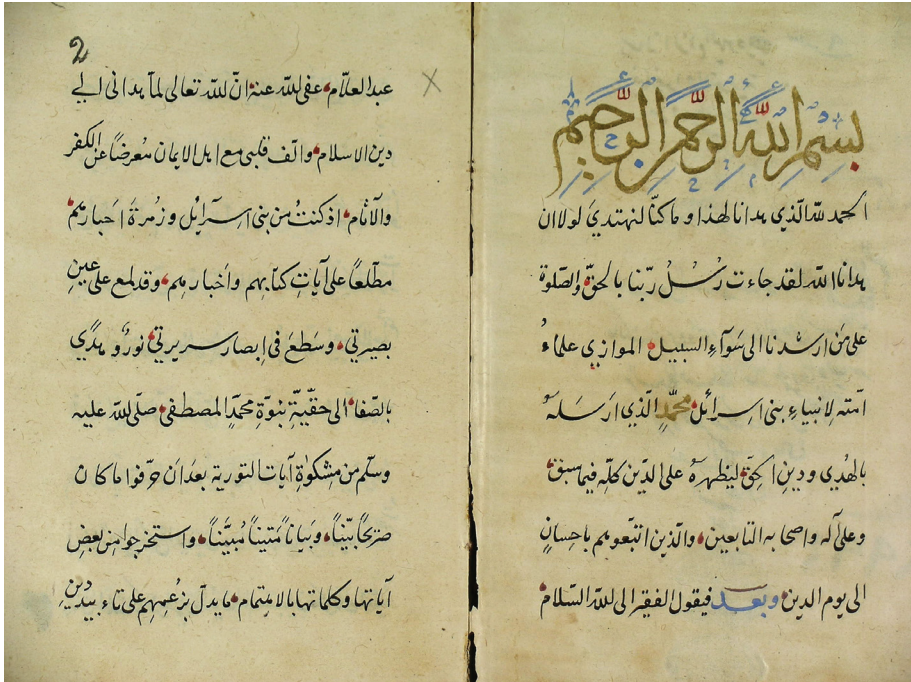 بِسْمِ اللّٰهِ الرَّحْمٰنِ الرَّحِيمِ
الحمد للّه الّذي هدانا لهذا وماكنّا لنهتدي لولا ان
هدانا اللّه لقد جاءت رُسُلُ ربّنا بالحقّ والصّلوة
على من ارشدنا الى سَوآءِ السبيل الموازي علماءُ
امّته لِانبياءِ بنى اِسرائل محمّدٍ الّذي ارسَلهُ
بالهُدي ودينِ الحقّ ليظهرهُ على الدّين كلّه فيما سبق
وعلى آله واصحابه التابعين والّذين اتبّعوهم باحسانٍ
الى يوم الدين وبعد فيقول الفقير الى للّه السّلام
2
عبد العلّام عفى للّه عنه انّ للّه تعالى لمآ هدانى الي
دين الاسلام والّف قلبى مع اهل الايمان مُعرضاً عن الكفر
والآثام اذ كنتُ من بنى اِسرآئل وزُمرة احبارهم
مطلّعاً على آيات كتابهم واخبارهم وقد لمع على عينِ
بصيرتي وسَطعَ في ابصار سريرتي نورُ وهدًي
بالصّفا الى حقّيّةِ نبوّة محمّدٍ المصطفى صلّى للّه عليه
وسلّم من مشكوٰة آيات التورية بعد ان حرّفوا ما كان
صريحًا بيّناً وبَياناً مَتيناً مُبيّناً واستخرجوا من بعض
آياتها وكلماتها بالاهتمام مايدلّ بزعمهم على تاءبيد دين